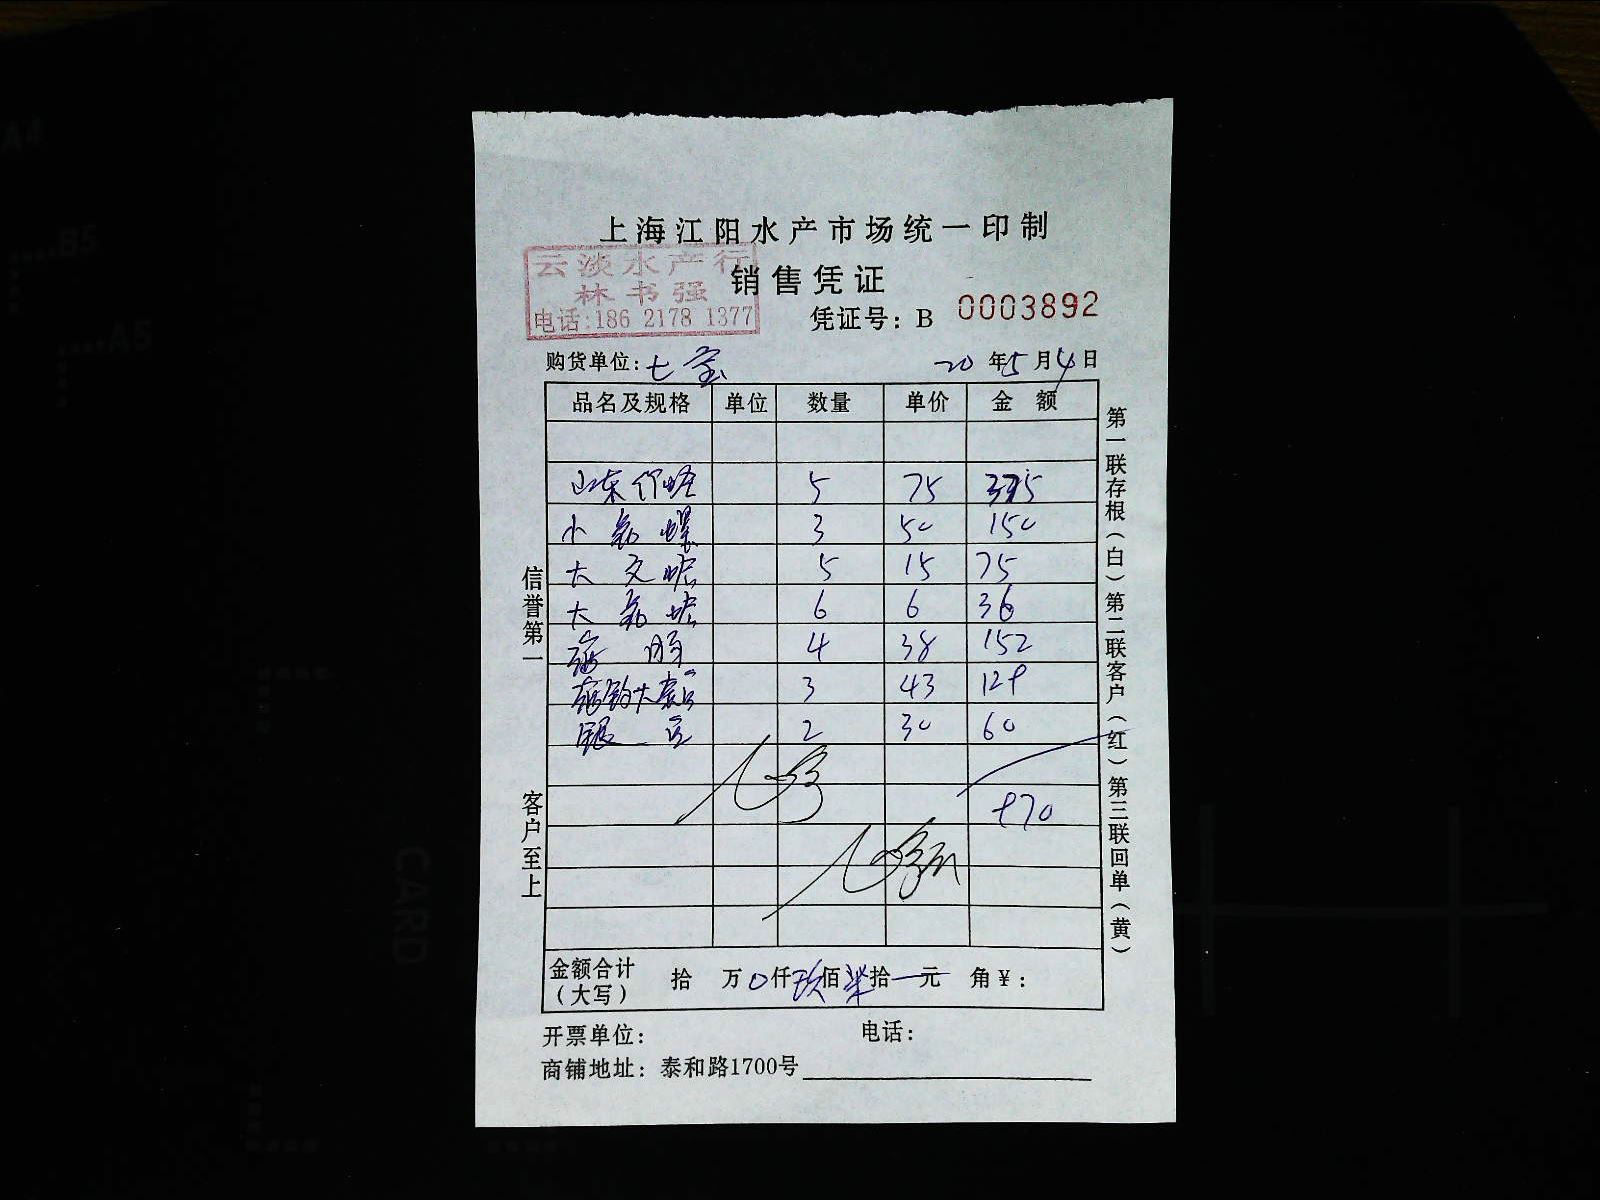 上海江阳水产市场统一印制
云淡水产行
林书强
电话:186 2178 1377
销售凭证
凭证号: B 0003892
购货单位: 七宝 20年5月4日
品名及规格 单位 数量 单价 金额
山东 5 75 375
小 螺 3 50 150
大文蛤 5 15 75
大 蛤 6 6 36
4 38 152
3 43 129
银 2 30 60
970
金额合计(大写) 拾 万0仟玖佰柒拾一元 角¥:
开票单位: 电话:
商铺地址: 泰和路1700号
信誉第一
客户至上
第一联存根(白)第二联客户(红)第三联回单(黄)
B5
A5
CARD